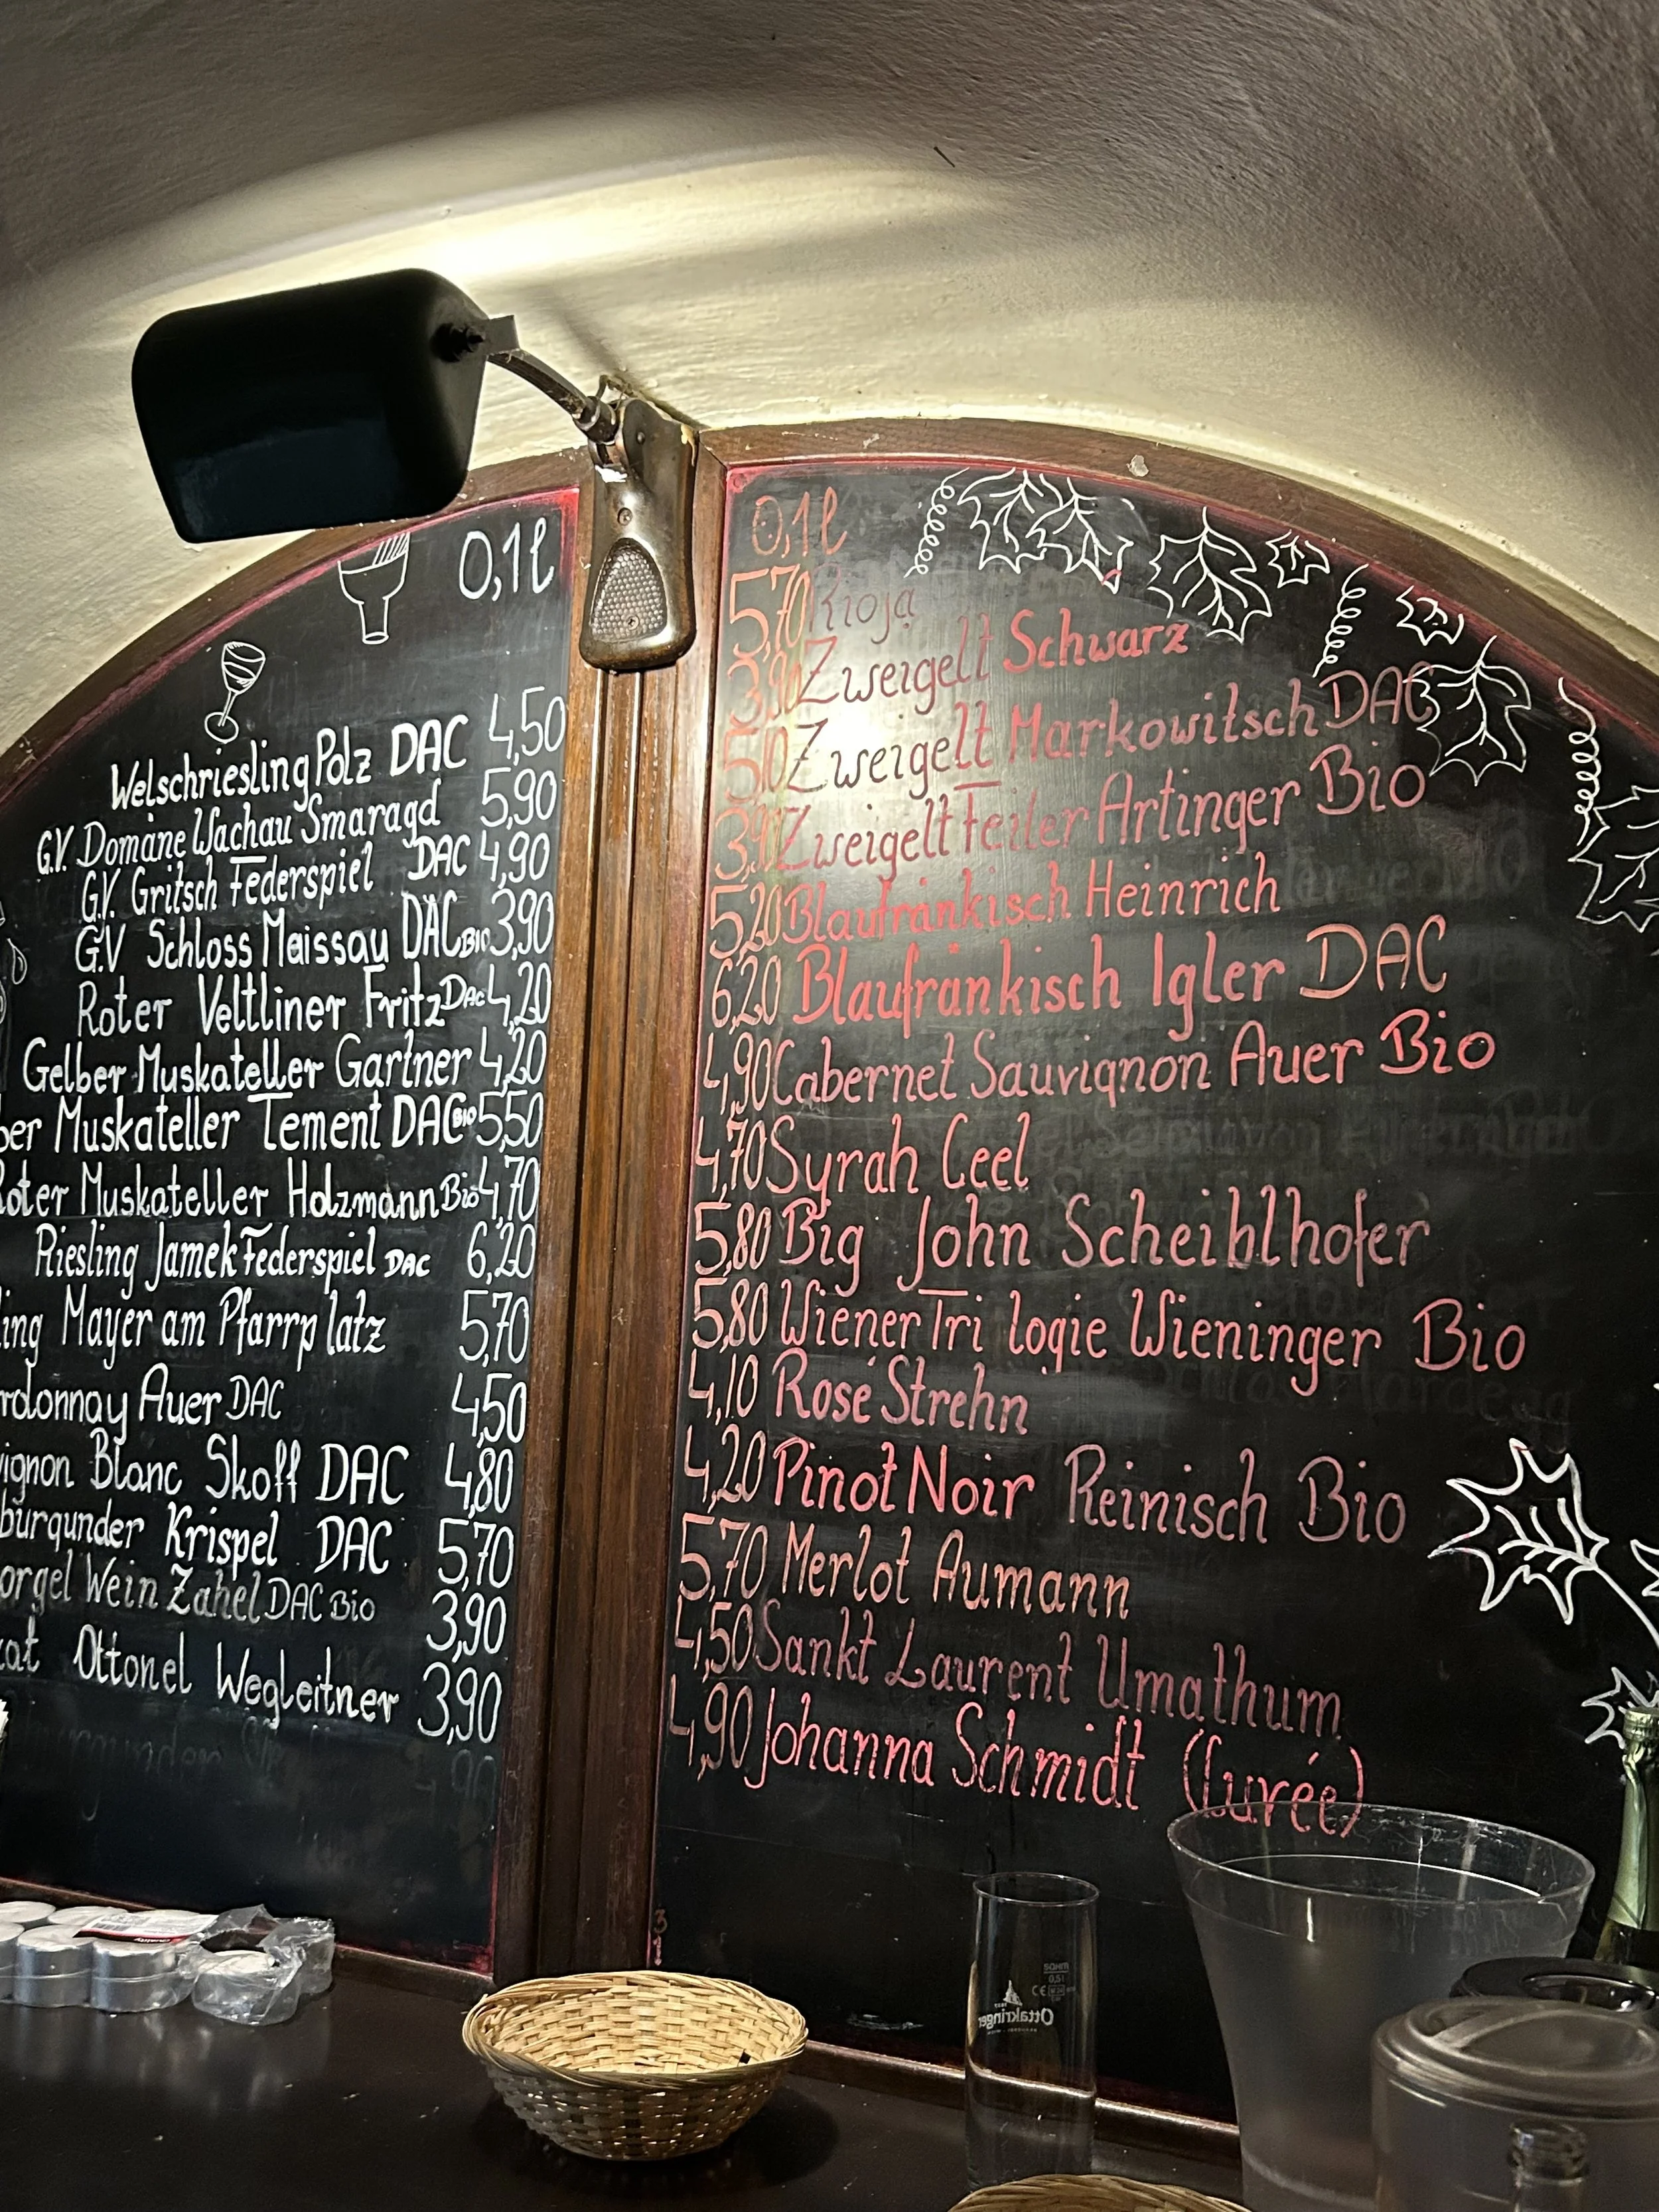 0,1l
Welschriesling Polz DAC 4,50
G.V. Domäne Wachau Smaragd 5,90
G.V. Gritsch Federspiel DAC 4,90
G.V Schloss Maissau DAC Bio 3,90
Roter Veltliner Fritz DAC 4,20
Gelber Muskateller Gartner 4,20
ber Muskateller Tement DAC Bio 5,50
Roter Muskateller Holzmann Bio 4,70
Riesling Jamek Federspiel DAC 6,20
ling Mayer am Pfarrplatz 5,70
rdonnay Auer DAC 4,50
vignon Blanc Skoff DAC 4,80
burgunder Krispel DAC 5,70
orgel Wein Zahel DAC Bio 3,90
kat Ottonel Wegleitner 3,90
0,1l
5,70 Rioja
3,90 Zweigelt Schwarz
5,10 Zweigelt Markowitsch DAC
3,90 Zweigelt Feiler Artinger Bio
5,20 Blaufränkisch Heinrich
6,20 Blaufränkisch Igler DAC
4,90 Cabernet Sauvignon Auer Bio
4,70 Syrah Ceel
5,80 Big John Scheiblhofer
5,80 Wiener Trilogie Wieninger Bio
4,10 Rosé Strehn
4,20 Pinot Noir Reinisch Bio
5,70 Merlot Aumann
4,50 Sankt Laurent Umathum
4,90 Johanna Schmidt (Cuvée)
Ottakringer
0,5l